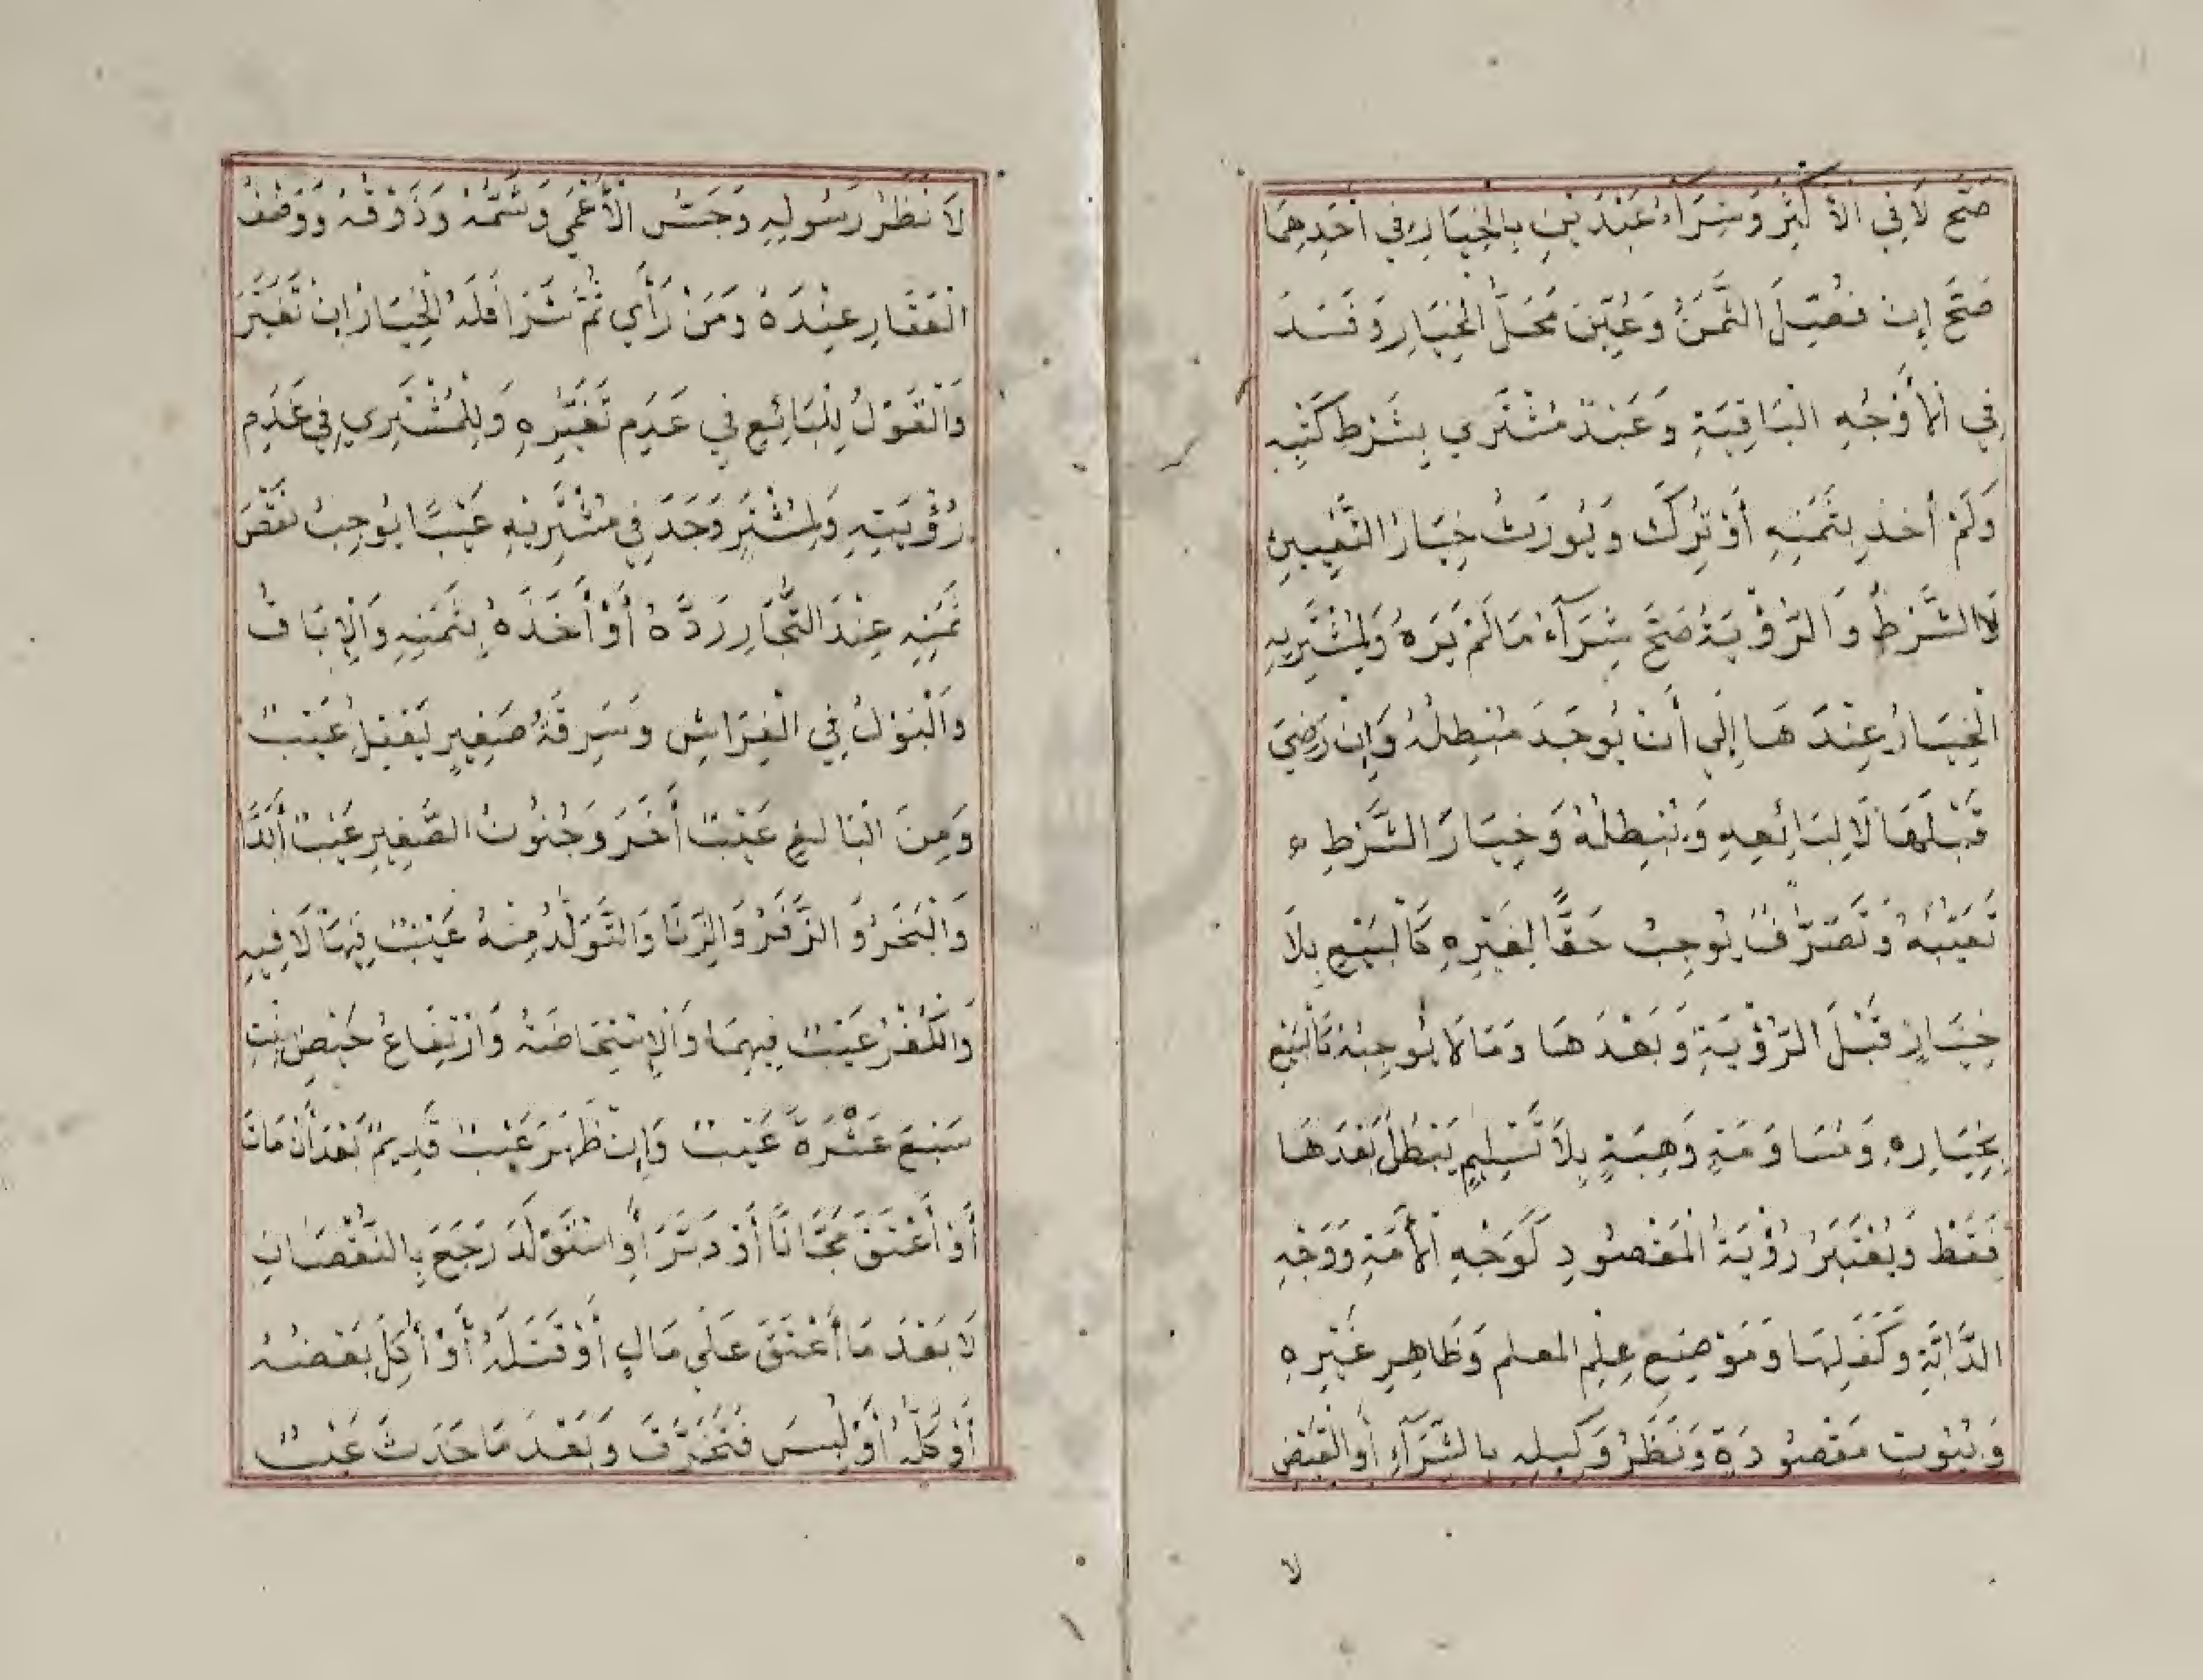 صَحَّ لَا فِي الأَكْثَرِ وَشِرَآءُ عَبْدَيْنِ بِالْخِيَارِ فِي أَحَدِهِمَا
صَحَّ إِنْ فُصِّلَ الثَّمَنُ وَعُيِّنَ مَحَلُّ الْخِيَارِ وَفَسَدَ
فِي الْأَوْجُهِ الْبَاقِيَةِ وَعَبْدٌ مُشْتَرِي بِشَرْطِ كَتْبِهِ
وَلَمْ أُخِذَ بِثَمَنِهِ أَوْ تُرِكَ وَيُورَثُ خِيَارُ التَّعْيِينِ
لَا الشَّرْطُ وَالرُّؤْيَةُ صَحَّ شِرَآءُ مَا لَمْ يَرَهُ وَلِمُشْتَرِيهِ
الْخِيَارُ عِنْدَهَا إِلَي أَنْ يُوجَدَ مُبْطِلُهُ وَإِنْ رَضِيَ
قَبْلَهَا لَا لِبَائِعِهِ وَيُبْطِلُهُ وَخِيَارَ الشَّرْطِ
تَعَيُّبُهُ وَتَصَرُّفٌ يُوجِبُ حَقًّا لِغَيْرِهِ كَالْبَيْعِ بِلَا
خِيَارٍ قَبْلَ الرُّؤْيَةِ وَبَعْدَهَا وَمَا لَا يُوجِبُهُ كَالْبَيْعِ
بِخِيَارِهِ وَمُسَاوَمَةٍ وَهِبَةٍ بِلَا تَسْلِيمٍ يَبْطُلُ بَعْدَهَا
فَقَطْ وَيُعْتَبَرُ رُؤْيَةُ الْمَقْصُودِ كَوَجْهِ الْأَمَةِ وَوَجْهِ
الدَّابَّةِ وَكَفَلِهَا وَمَوْضِعِ عِلْمِ المعلم وَظَاهِرِ غَيْرِهِ
وَبُيُوتٍ مَقْصُودَةٍ وَنَظَرُ وَكِيلِهِ بِالشِّرَآءِ أَوِ الْقَبْضِ
لا
لَا نَظَرُ رَسُولِهِ وَجَسُّ الْأَعْمَي وَشَمُّهُ وَذَوْقُهُ وَوَصْفُ
الْعَقَارِ عِنْدَهُ وَمَنْ رَأَي ثُمَّ شَرَا فَلَهُ الْخِيَارُ إِنْ تَغَيَّرَ
وَالْقَوْلُ لِلْبَائِعِ فِي عَدَمِ تَغَيُّرِهِ وَلِلْمُشْتَرِي فِي عَدَمِ
رُؤْيَتِهِ وَلِمُشْتَرٍ وَجَدَ فِي مُشْتَرِيهِ عَيْبًا يُوجِبُ نَقْصَ
ثَمَنِهِ عِنْدَ التُّجَّارِ رَدُّهُ أَوْ أَخْذُهُ بِثَمَنِهِ وَالْإِبَاقُ
وَالْبَوْلُ فِي الْفِرَاشِ وَسَرِقَةُ صَغِيرٍ يَعْقِلُ عَيْبٌ
وَمِنَ الْبَالِغِ عَيْبٌ أَخَرُ وَجُنُونُ الصَّغِيرِ عَيْبٌ أَبَدًا
وَالْبَخَرُ وَالزَّفَرُ وَالزِّنَا وَالتَّوَلُّدُ مِنْهُ عَيْبٌ فِيهَا لَا فِيهِ
وَالْكُفْرُ عَيْبٌ فِيهِمَا وَالْإِسْتِحَاضَةُ وَارْتِفَاعُ حَيْضِ بِنْتِ
سَبْعَ عَشْرَةَ عَيْبٌ وَإِنْ ظَهَرَ عَيْبٌ قَدِيمٌ بَعْدَ أَنْ مَاتَ
أَوْ أَعْتَقَ مَجَّانًا أَوْ دَبَّرَ أَوِ اسْتَوْلَدَ رَجَعَ بِالنُّقْصَانِ
لَا بَعْدَ مَا أَعْتَقَ عَلَي مَالٍ أَوْ قَتَلَهُ أَوْ أُكِلَ بَعْضُهُ
أَوْ كُلُّهُ أَوْ لُبِسَ فَتَخَرَّقَ وَبَعْدَ مَا حَدَثَ عَيْبٌ